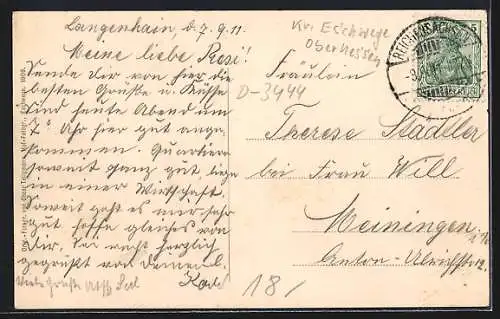 Langenhain, d. 7. 9. 11.
Meine liebe Resi!
Sende Dir von hier die
besten Grüße u. Küsse
Sind heute Abend um
7 Uhr hier gut ange-
kommen. Quartiere
soweit ganz gut, liege
in einer Wirtschaft.
Soweit geht es mir sehr
gut, hoffe gleiches von
Dir. Sei noch herzlich
gegrüßt von Deinem l.
Karl
Viele Grüße
Kr. Eschwege
Oberhessen
D-3444
REICHENSACHSEN
5
Fräulein
Therese Stadtler
bei Frau Will.
Meiningen i/Th
Anton-Ulrichstr. 12.
18/